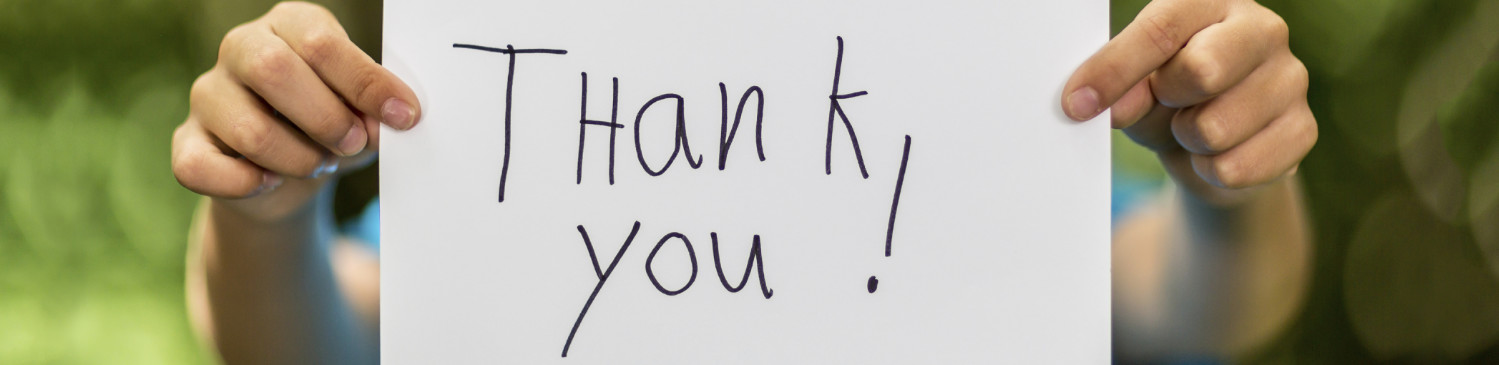 THank
you !